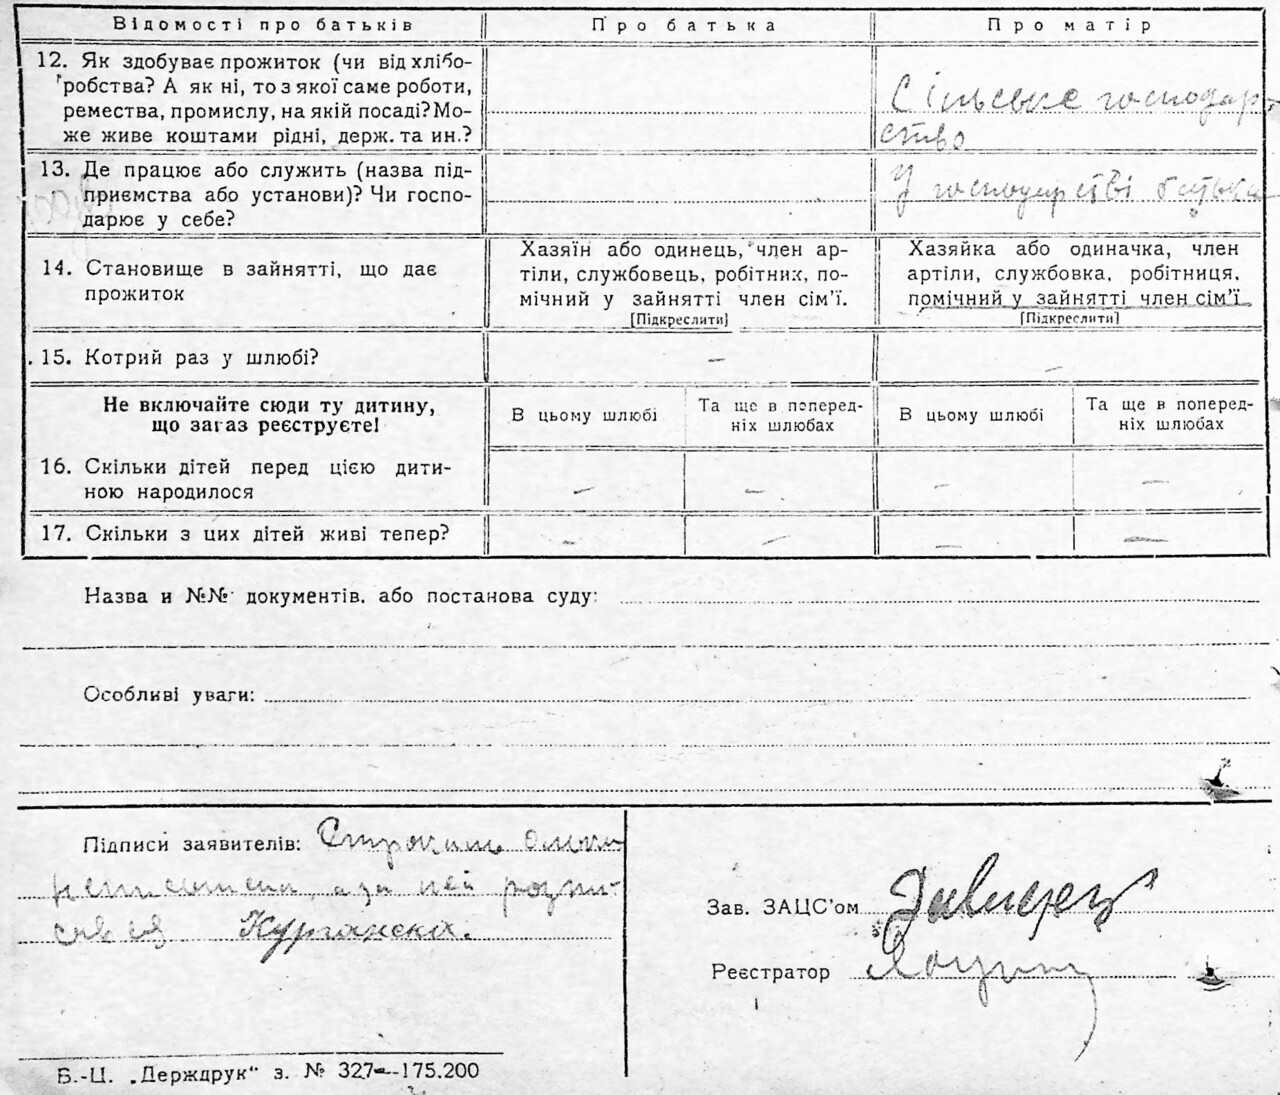 Відомості про батьків Про батька Про матір
12. Як здобуває прожиток (чи від хлібо-
робства? А як ні, то з якої саме роботи,
ремества, промислу, на якій посаді? Мо-
же живе коштами рідні, держ. та ин.?
Сільське господар-
ство
13. Де працює або служить (назва під-
приємства або установи)? Чи госпо-
дарює у себе?
У господарстві батька
14. Становище в зайнятті, що дає
прожиток
Хазяїн або одинець, член ар-
тіли, службовець, робітних, по-
мічний у зайнятті член сім’ї.
[Підкреслити]
Хазяйка або одиначка, член
артіли, службовка, робітниця,
помічний у зайнятті член сім’ї
[Підкреслити]
15. Котрий раз у шлюбі? – –
Не включайте сюди ту дитину,
що загаз реєструєте!
В цьому шлюбі
Та ще в поперед-
ніх шлюбах
В цьому шлюбі
Та ще в поперед-
ніх шлюбах
16. Скільки дітей перед цією дити-
ною народилося – – – –
17. Скільки з цих дітей живі тепер? – – – –
Назва и №№ документів, або постанова суду:
Особливі уваги:
Підписи заявителів:
а за неї розпи-
сався Курганска.
Зав. ЗАЦС’ом
Реєстратор
Б.-Ц. „Держдрук“ з. № 327—175.200